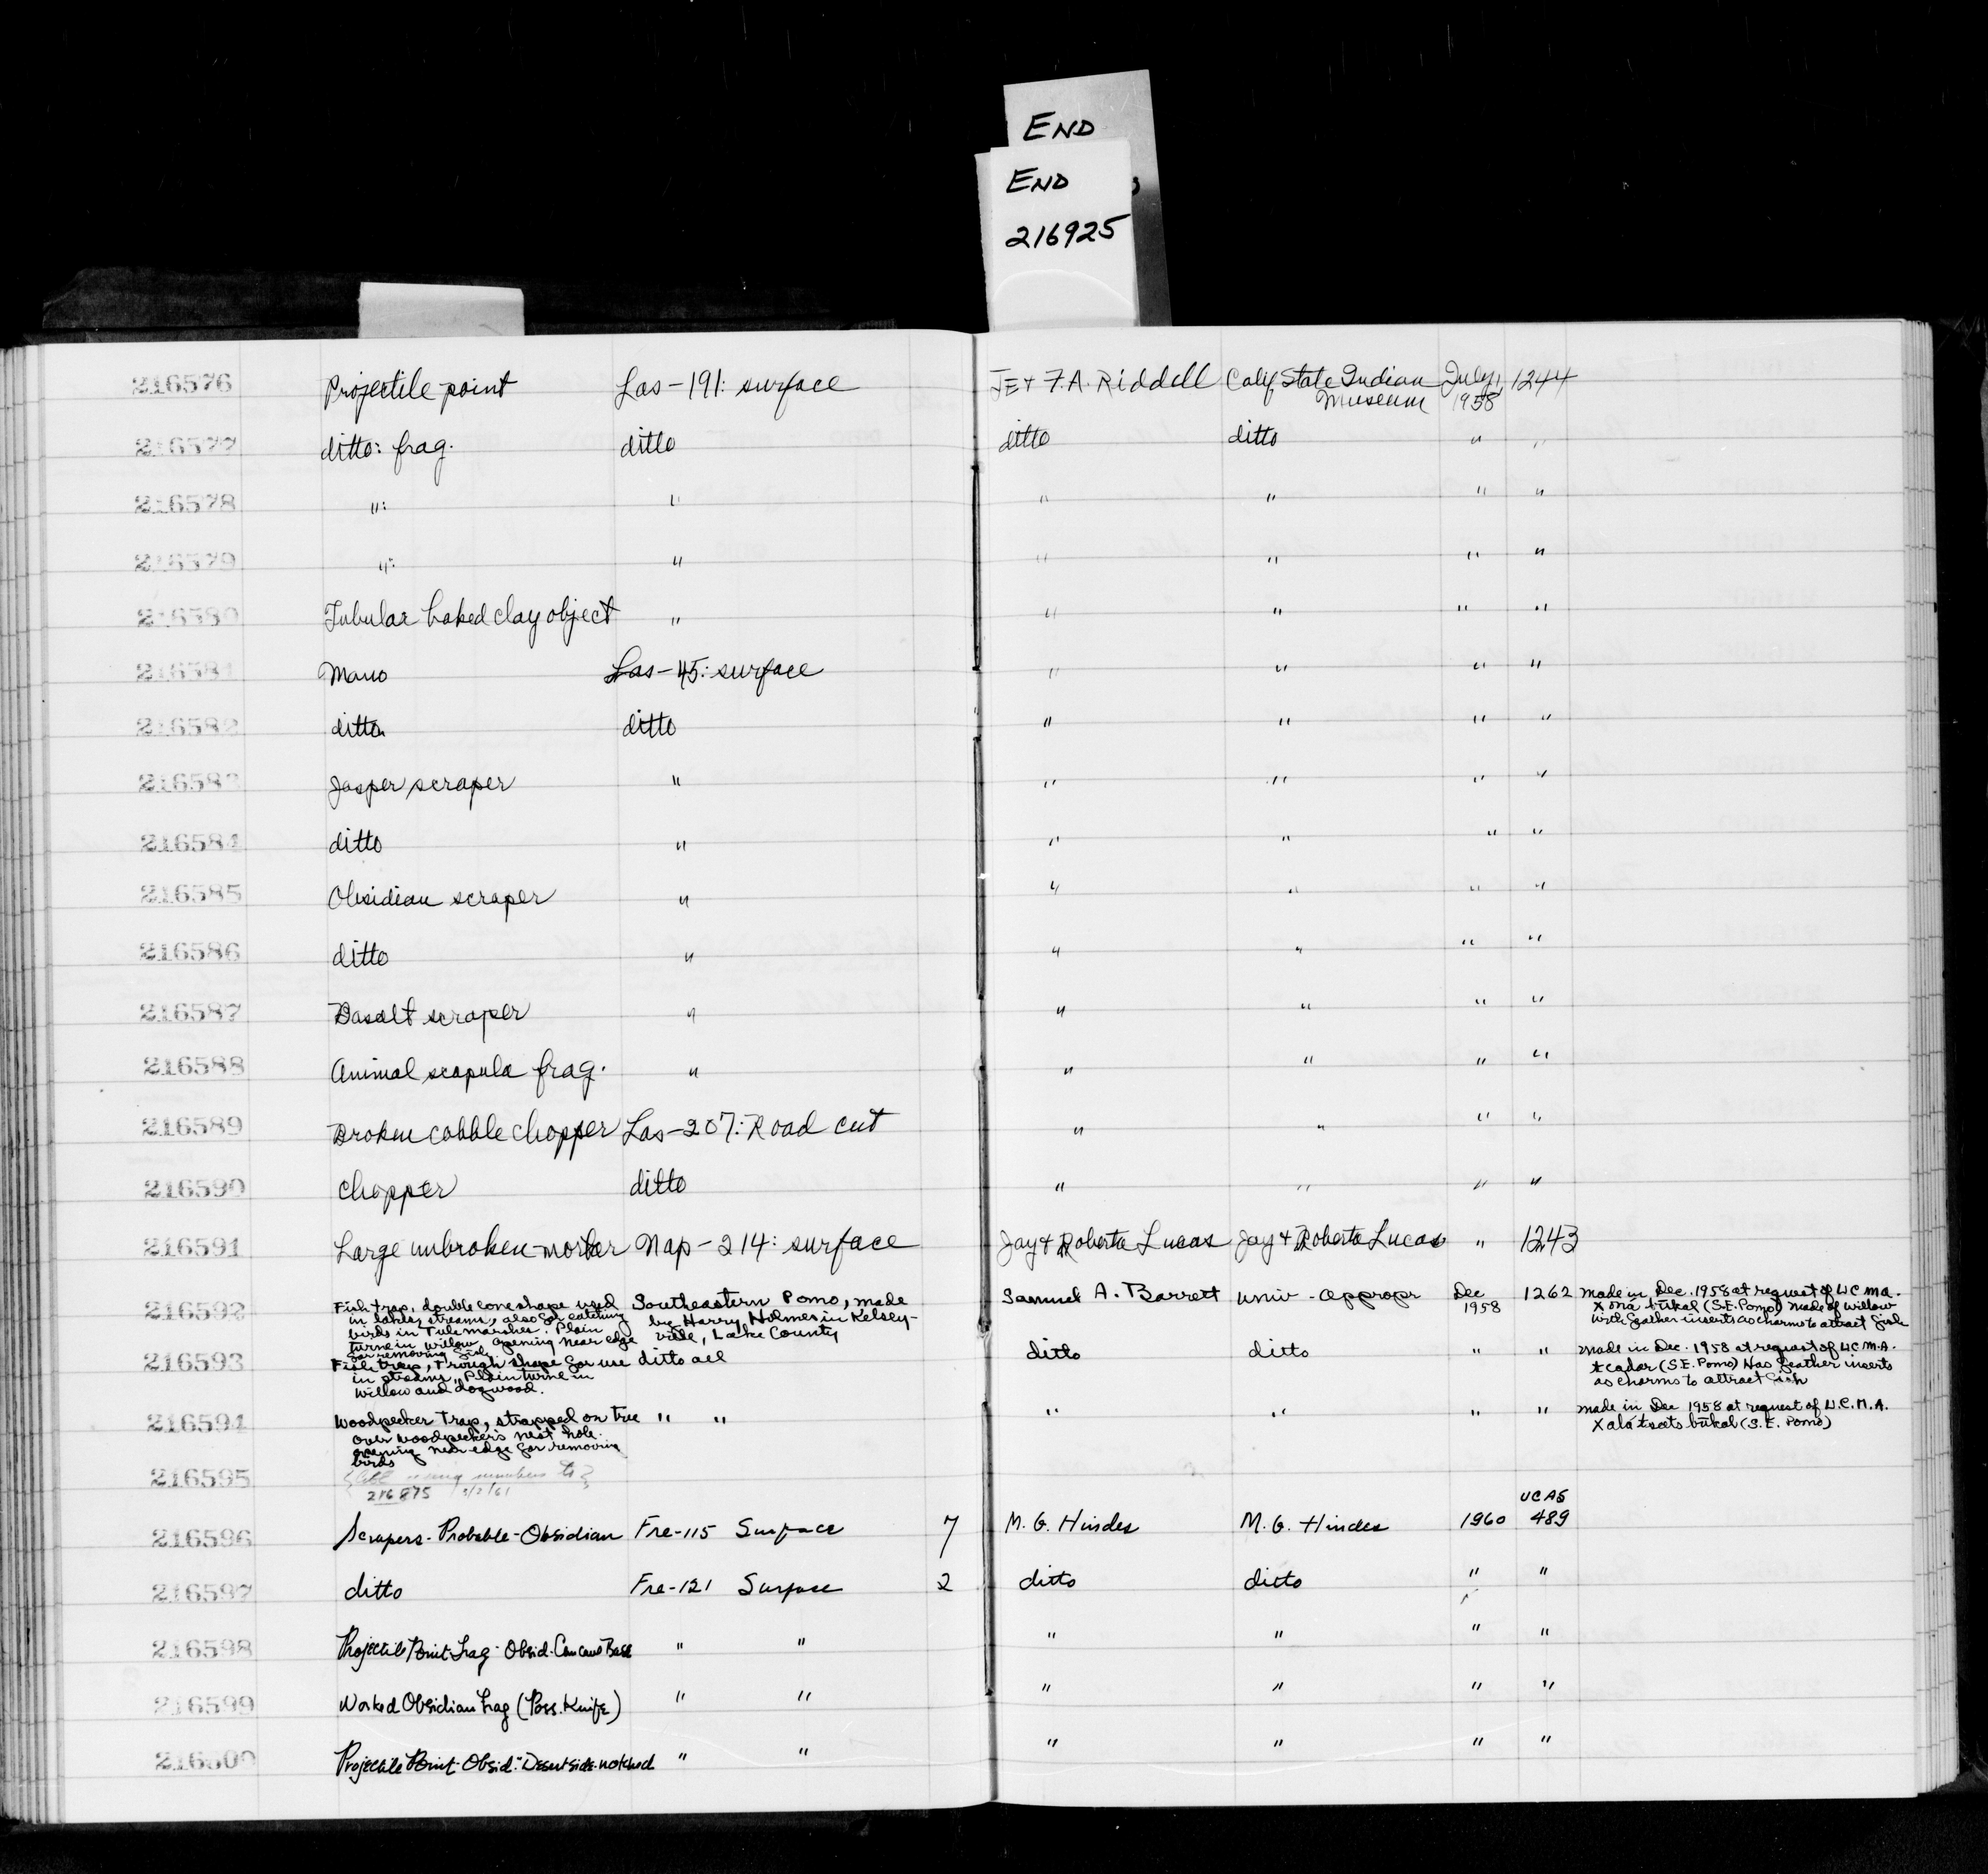 END
END
216925
216576 Projectile point Las-191: surface JE + F.A. Riddell Calif State Indian Museum July, 1958 1244
216577 ditto: frag. ditto ditto ditto " "
216578 ": " " " " "
216579 ": " " " " "
216580 Tubular baked clay object " " " " "
216581 Mano Las-45: surface " " " "
216582 ditto ditto " " " "
216583 Jasper scraper " " " " "
216584 ditto " " " " "
216585 Obsidian scraper " " " " "
216586 ditto " " " " "
216587 Basalt scraper " " " " "
216588 Animal scapula frag. " " " " "
216589 Broken cobble chopper Las-207: Road cut " " " "
216590 Chopper ditto " " " "
216591 Large unbroken mortar Nap-214: surface Jay + Roberta Lucas Jay + Roberta Lucas " 1243
216592 Fish trap, double cone shape used
in lakes, streams, also for catching
birds in Tule marshes. Plain
turne in willow opening near edge
for removing fish.
Southeastern Pomo, made
by Harry Holmes in Kelsey-
ville, Lake County
Samuel A. Barrett Univ - Appropr Dec 1958 1262
made in Dec. 1958 at request of UCMA.
Xona bukal (S.E. Pomo) Made of willow
with feather inserts as charms to attract fish
216593 Fish trap, Trough shape for use
in streams, Plain turne in
willow and dogwood.
ditto all ditto ditto " "
made in Dec. 1958 at request of UCMA.
(S.E. Pomo) Has feather inserts
as charms to attract fish
216594 Woodpecker Trap, strapped on tree
over woodpecker's nest hole.
opening near edge for removing
birds
" " " " " "
made in Dec 1958 at request of U.C.M.A.
bukal (S.E. Pomo)
216595 numbers to
216875 3/2/61
216596 Scrapers - Probable - Obsidian Fre-115 Surface 7 M.G. Hindes M.G. Hindes 1960 UCAS 489
216597 ditto Fre-121 Surface 2 ditto ditto " "
216598 Projectile Point frag - Obsid. Concave Base " " " " " "
216599 Worked Obsidian frag (Poss. Knife) " " " " " "
216600 Projectile Point - Obsid. - Desert side-notched " " " " " "